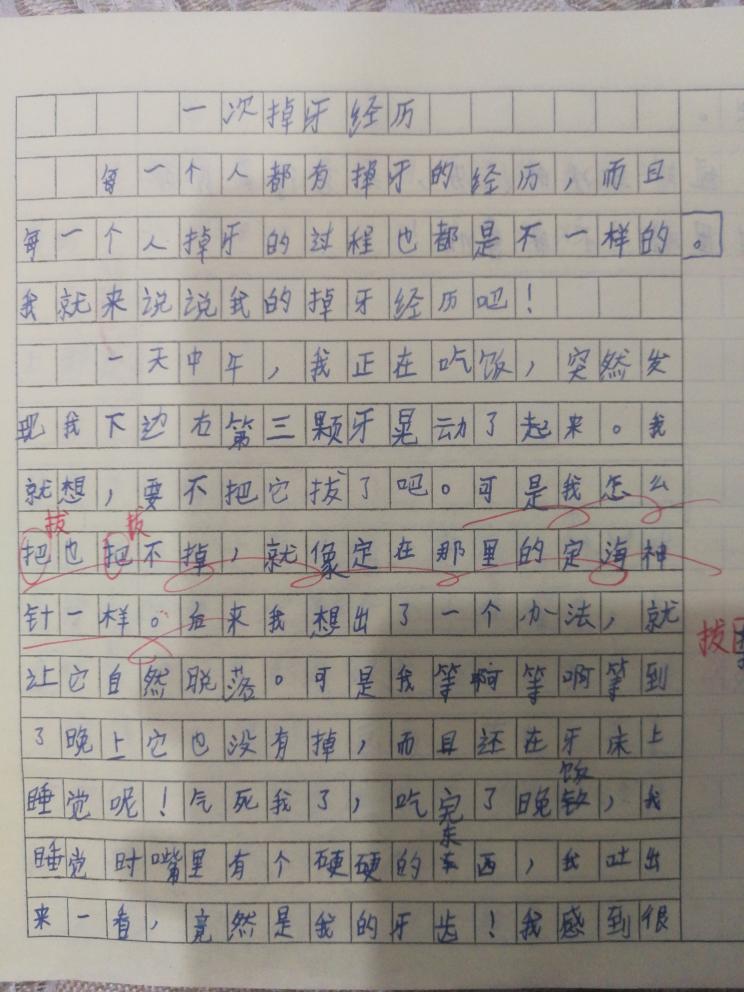 一次掉牙经历
每一个人都有掉牙的经历，而且
每一个人掉牙的过程也都是不一样的。
我就来说说我的掉牙经历吧！
一天中午，我正在吃饭，突然发
现我下边右第三颗牙晃动了起来。我
就想，要不把它拔了吧。可是我怎么
拔 拔
把也把不掉，就像定在那里的定海神
针一样。后来我想出了一个办法，就
拔
让它自然脱落。可是我等啊等啊等到
了晚上它也没有掉，而且还在牙床上
饭
睡觉呢！气死我了，吃完了晚，我
东
睡觉时嘴里有个硬硬的西，我吐出
来一看，竟然是我的牙齿！我感到很